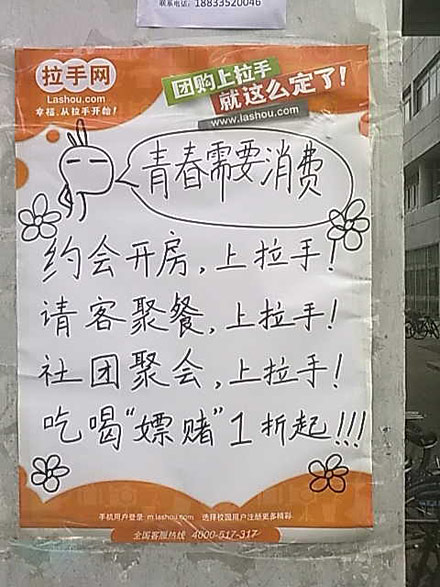 联系电话：18833520046
拉手网
Lashou.com
幸福，从拉手开始！
团购上拉手
就这么定了！
www.lashou.com
青春需要消费
约会开房，上拉手！
请客聚餐，上拉手！
社团聚会，上拉手！
吃喝“嫖赌”1折起!!!
手机用户登录 m.lashou.com 选择校园用户注册更多精彩
全国客服热线 4000-517-317